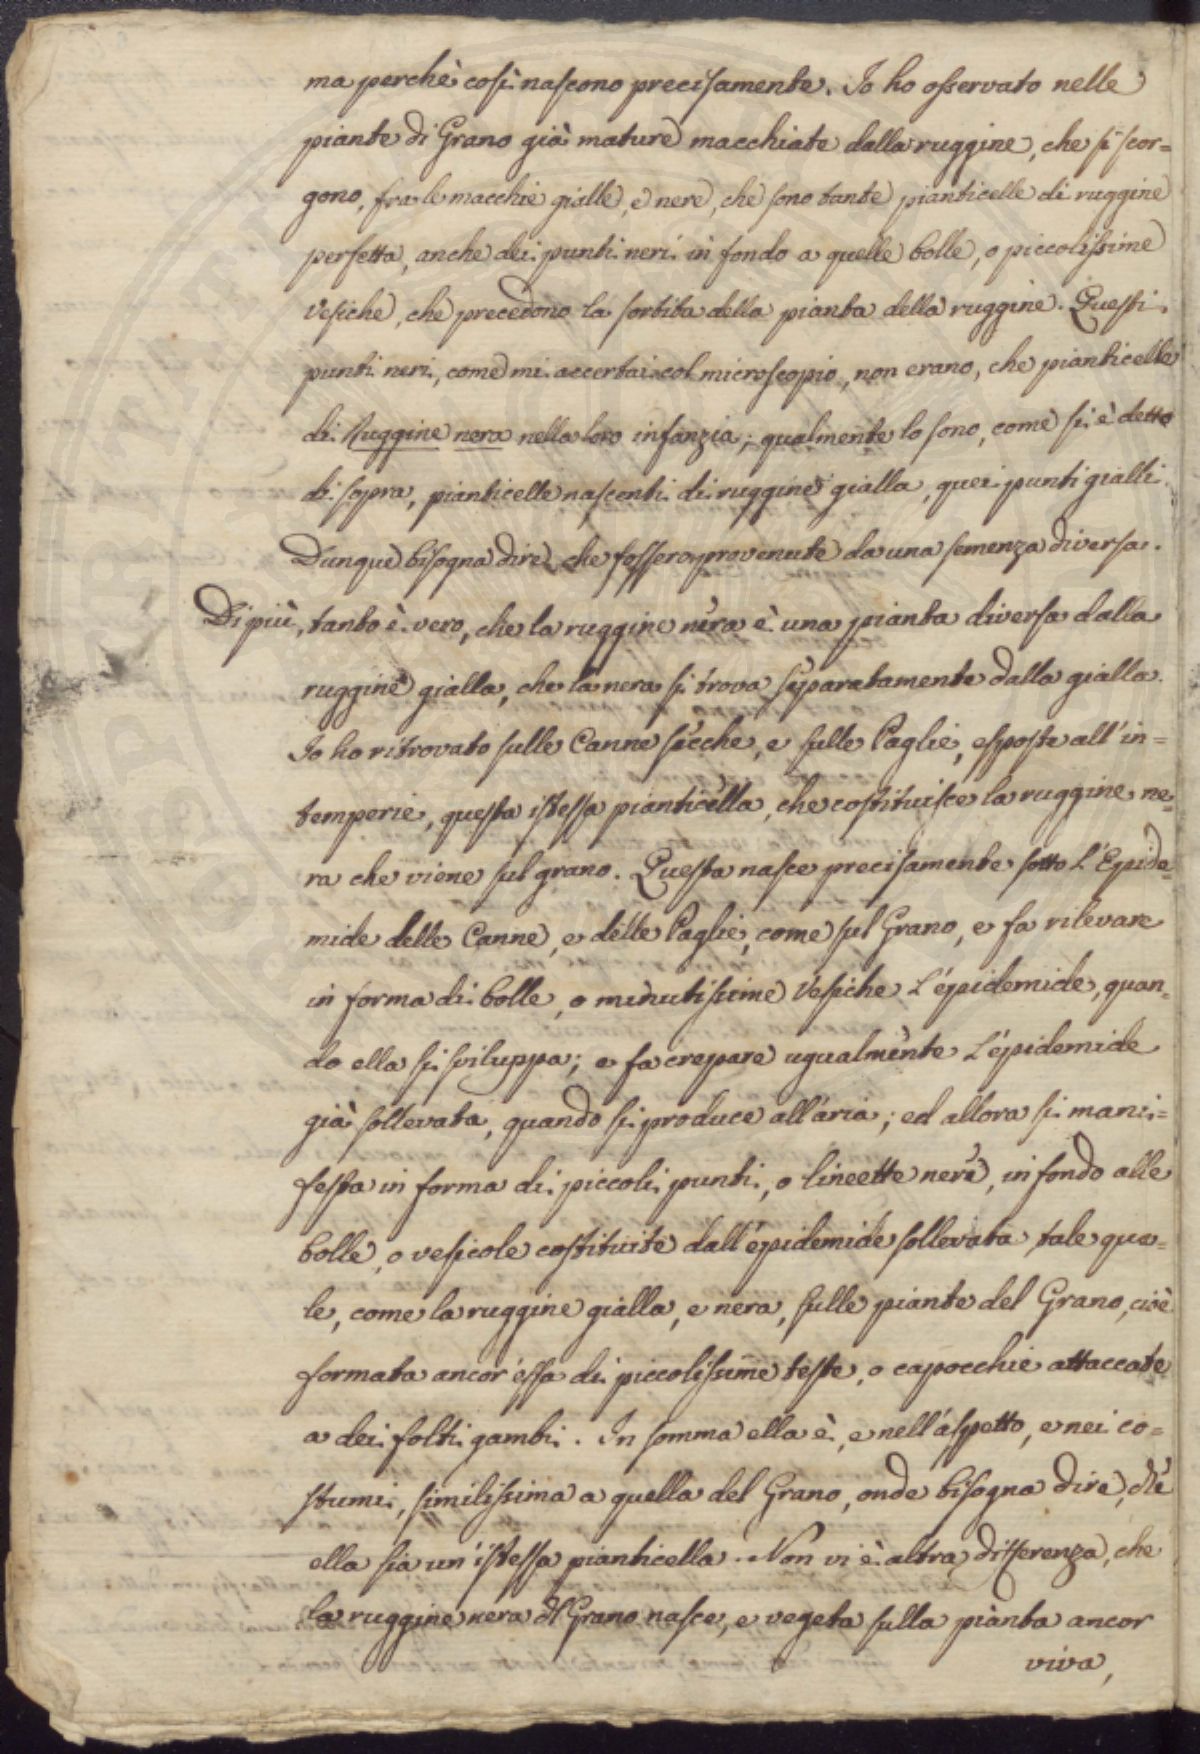 ma perchè così nascono precisamente. Io ho osservato nelle
piante di Grano già mature macchiate dalla ruggine, che si scor=
gono, fra le macchie gialle, e nere, che sono tante pianticelle di ruggine
perfetta, anche dei punti neri in fondo a quelle bolle, o piccolissime
Vesiche, che precedono la sortita della pianta della ruggine. Questi
punti neri, come mi accertai col microscopio, non erano, che pianticelle
di Ruggine nera nella loro infanzia; qualmente lo sono, come si è detto
di sopra, pianticelle nascenti di ruggine gialla, quei punti gialli.
Dunque bisogna dire, che fossero provenute da una semenza diversa.
Di più, tanto è vero, che la ruggine nera è una pianta diversa dalla
ruggine gialla, che la nera si trova separatamente dalla gialla.
Io ho ritrovato sulle Canne secche, e sulle Paglie, esposte all'in=
temperie, questa istessa pianticella, che costituisce la ruggine ne=
ra che viene sul grano. Questa nasce precisamente sotto l'Epide=
mide delle Canne, e delle Paglie, come sul Grano, e fa rilevare
in forma di bolle, o minutissime Vesiche l'epidemide, quan=
do ella si sviluppa; e fa crepare ugualmente l'epidemide
già sollevata, quando si produce all'aria; ed allora si mani=
festa in forma di piccoli punti, o lineette nere, in fondo alle
bolle, o vesicole costituite dall'epidemide sollevata tale qua=
le, come la ruggine gialla, e nera, sulle piante del Grano, cioè
formata ancor essa di piccolissime teste, o capocchie attaccate
a dei folti gambi. In somma ella è, e nell'aspetto, e nei co=
stumi, similissima a quella del Grano, onde bisogna dire, che
ella sia un'istessa pianticella. Non vi è altra differenza, che
la ruggine nera del Grano nasce, e vegeta sulla pianta ancor
viva,